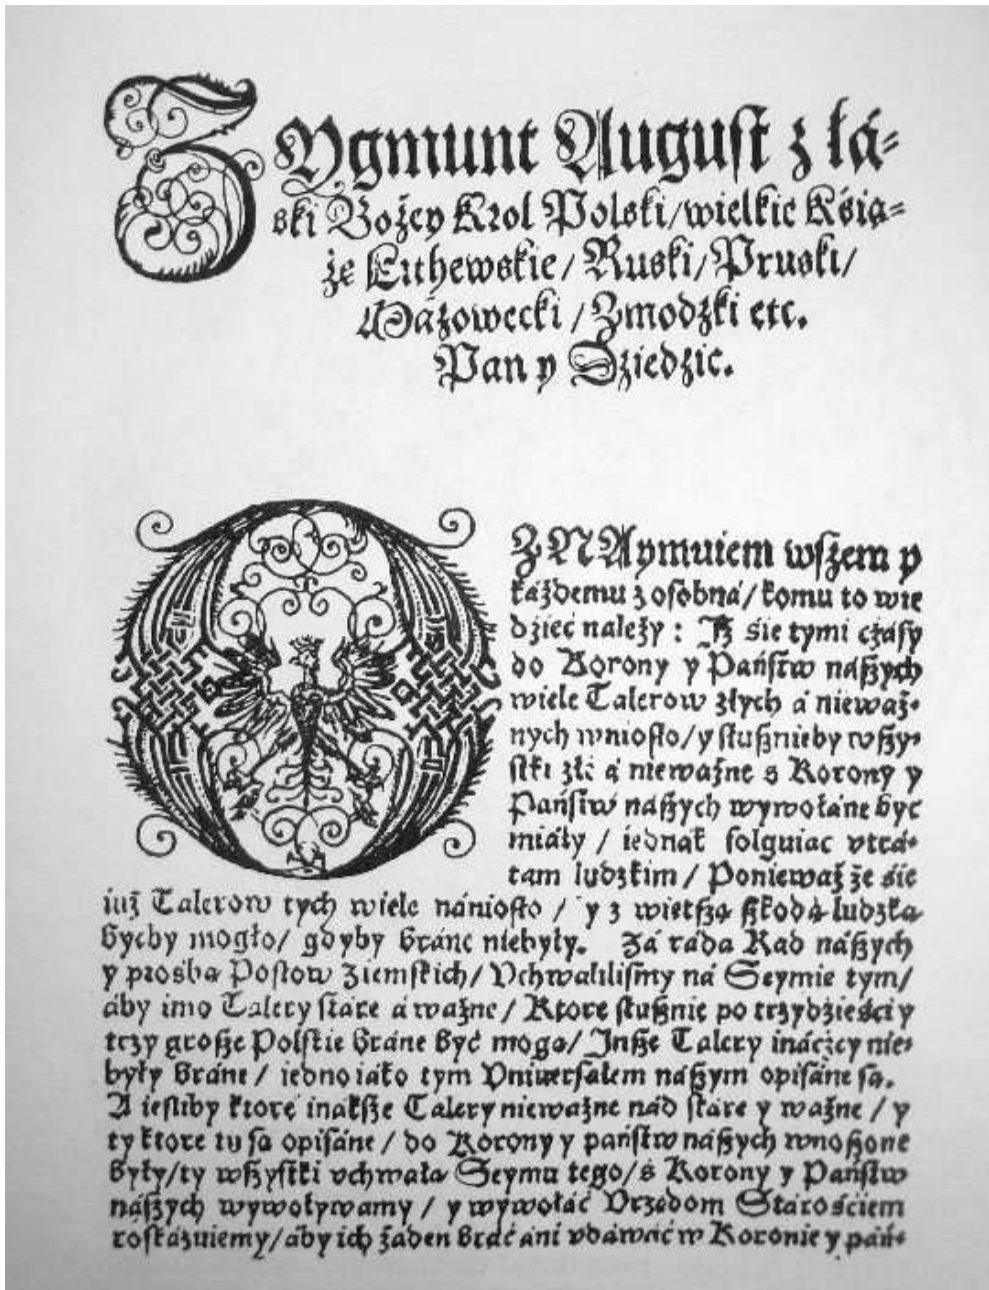 Zygmunt August z łá-
ski Bożey Krol Polski/wielkie Ksią-
że Lithewskie/Ruski/Pruski/
Mázowecki/Zmodzki etc.
Pan y Dziedzic.
OZNAymuiem wszem y
káżdemu z osobná/komu to wie
dzieć należy: Jż sie tymi czásy
do Korony y Państw nászych
wiele Talerow złych á nieważ-
nych wniosło/y słusznieby wszy-
stki złé á nieważne s Korony y
Państw nászych wywołáne być
miáły/iednák folguiac vtrá-
tam ludzkim/Ponieważ że sie
iuż Talerow tych wiele nániosło/y z wietszą szkodą ludzką
byćby mogło/gdyby bráne niebyły. Zá radą Rad nászych
y prośbą Posłow Ziemskich/Vchwalilismy ná Seymie tym/
áby imo Talery stáre á ważne/Ktore słusznie po trzydzieści y
trzy grosze Polskie bráne być mogą/Jnsze Taleryináczey nie-
były bráne/iedno iáko tym Vniwersałem nászym opisáne są.
A iesliby ktore inaksze Talery nieważne nád stáre y ważne/y
ty ktore tu są opisáne/do Korony y państw nászych wnoszone
były/ty wszystki vchwałą Seymu tego/s Korony y Państw
nászych wywoływamy/y wywołáć Vrzędom Stárościem
roskázuiemy/áby ich żaden bráć áni vdáwáć w Koronie y pań-